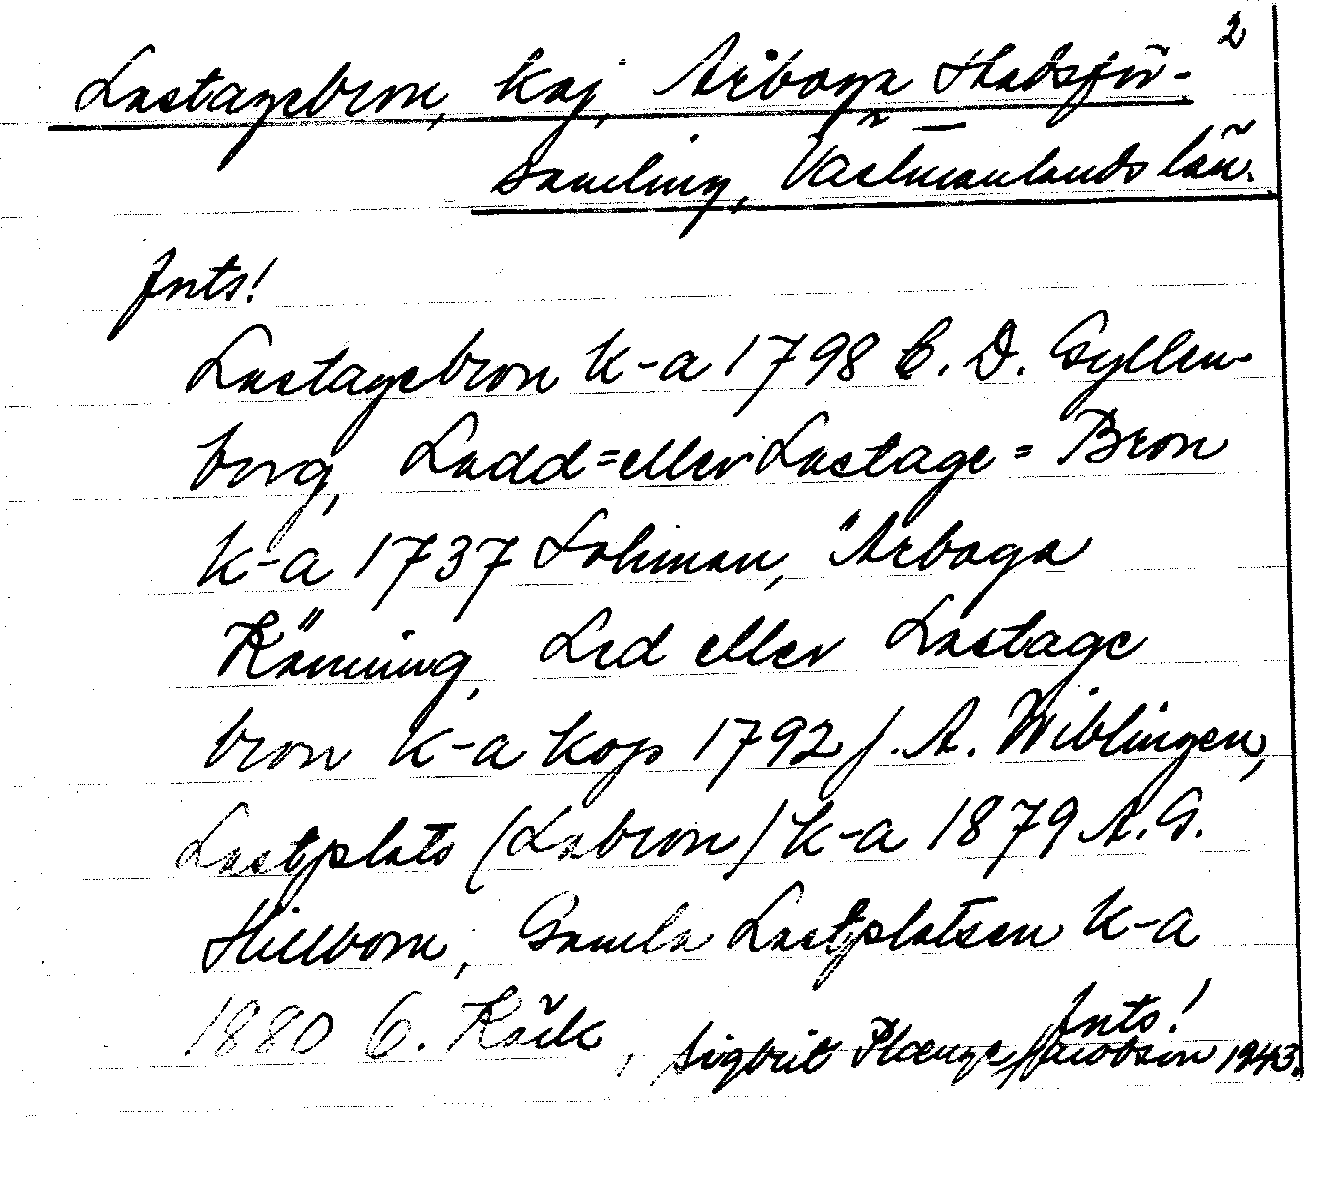 2
Lastagebron, kaj, Arboga Stadsför-
samling, Västmanlands län.
Jnts!
Lastagebron k-a 1798 C. D. Gyllen-
borg, Ladd=eller Lastage=Bron
k-a 1737 Lohman, Arboga
Känning, Led eller Lastage
bron k-a kop 1792 J. A. Wiblingen,
Lastplats (Labron) k-a 1879 A.G.
Hillbom, Gamla Lastplatsen k-a
1880 C. Käck, Jnts!
Sigbrit Plænge Jacobson 1943.